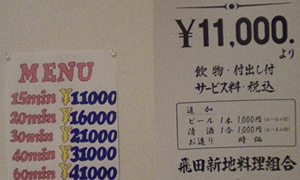 MENU
15min ¥11000
20min ¥16000
30min ¥21000
40min ¥31000
60min ¥41000
¥11,000.
より
飲物・付出し付
サービス料・税込
追加
ビール 1本 1,000円
清酒 1合 1,000円
お造り 時価
飛田新地料理組合